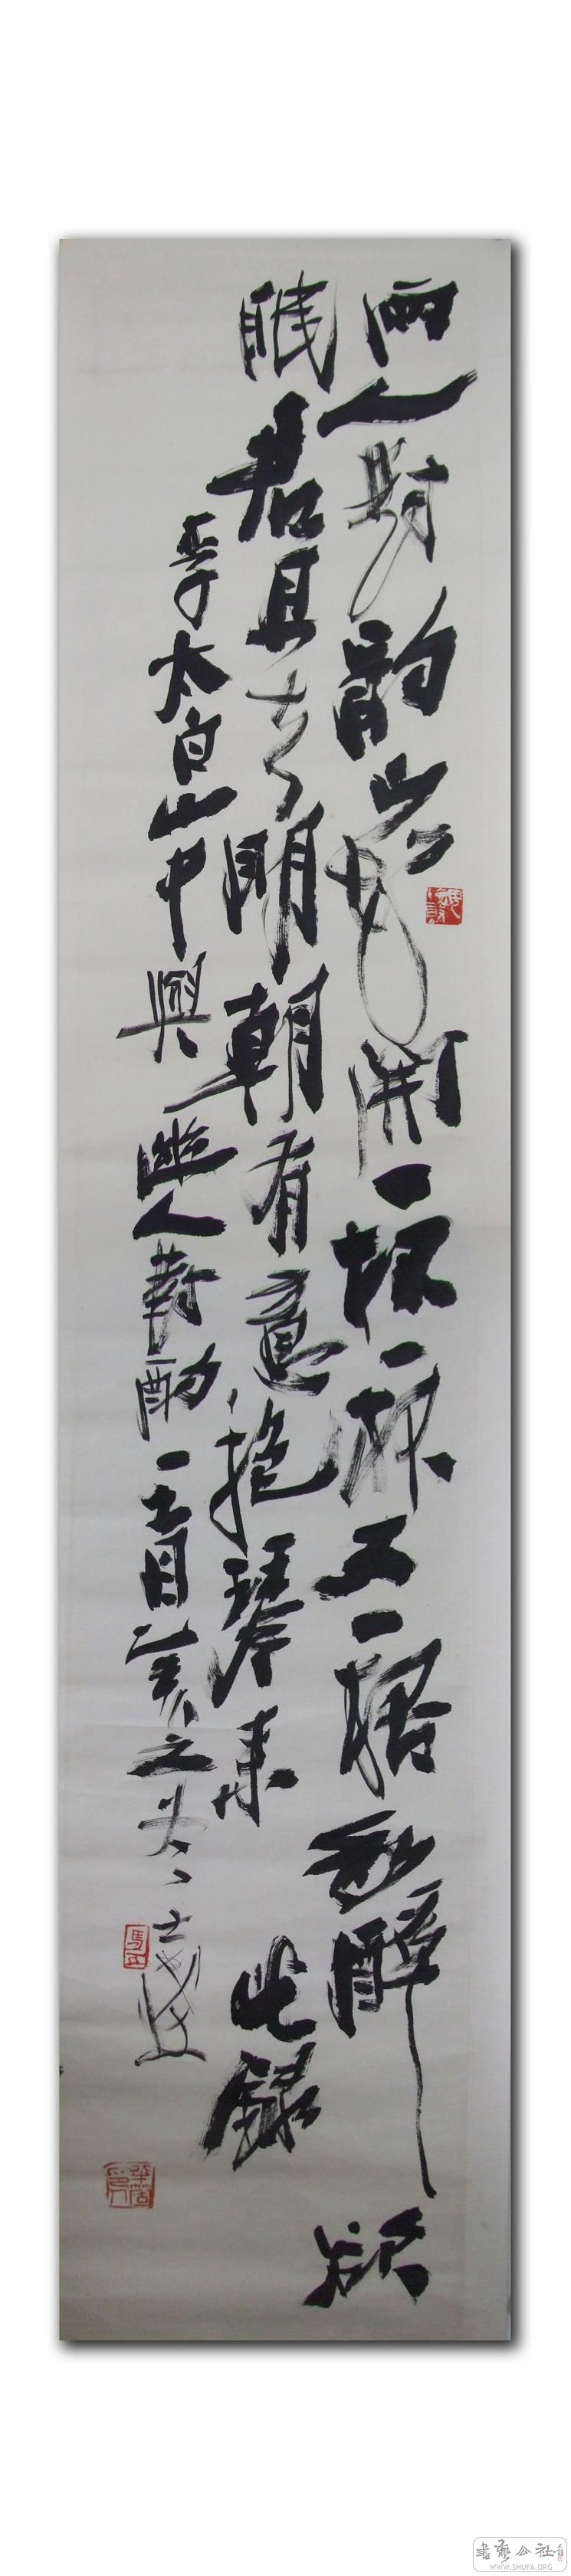 两人對酌山花開一杯一杯又一杯我醉欲
眠君且去明朝有意抱琴來 此錄
李太白山中興幽人對酌
書藝公社
WWW.SHUFA.ORG